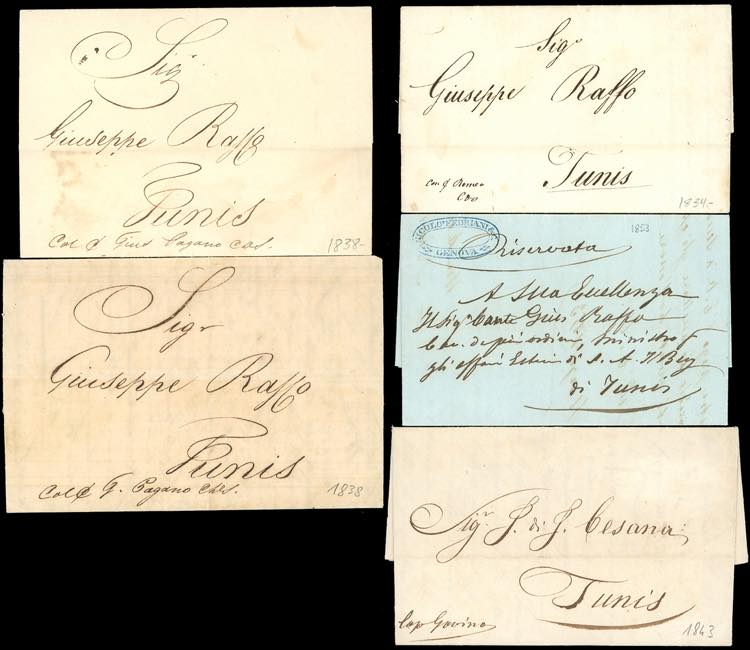 Sigr
Giuseppe Raffo
Tunis
Col C. Gius Pagano
1838-
Sigr
Giuseppe Raffo
Tunis
G. Pagano
1838
Sigr
Giuseppe Raffo
Tunis
Con C. Romeo
1834-
NICOLO FEDRIANI
GENOVA
1853
Riservata
A Sua Eccellenza
Il Sigr Conte Gius Raffo
Cav. di più ordini, Ministro
gli affari Esteri di S. A. Il Bey
di Tunis
Sigr. J. di J. Cesana
Tunis
Cap Gavino
1843